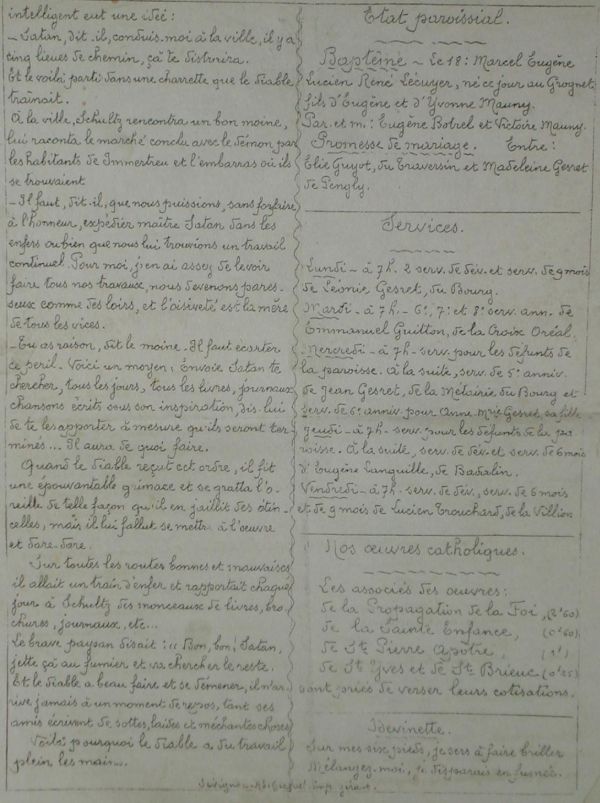 intelligent eut une idée :
- Satan, dit-il, conduis-moi à la ville, il y a
cinq lieues de chemin, çà te distraira.
Et le voilà parti dans une charrette que le diable
traînait.
A la ville, Schultz rencontra un bon moine,
lui raconta le marché conclu avec le démon par
les habitants de Immertreu et l'embarras où ils
se trouvaient
- Il faut, dit-il, que nous puissions, sans forfaire
à l'honneur, expédier maître Satan dans les
enfers ou bien que nous lui trouvions un travail
continuel. Pour moi, j'en ai assez de le voir
faire tous nos travaux, nous devenons pares-
seux comme des loirs, et l'oisiveté est la mère
de tous les vices.
- Tu as raison, dit le moine. Il faut écarter
ce péril. Voici un moyen : Envoie Satan te
chercher, tous les jours, tous les livres, journaux
chansons écrits sous son inspiration, dis-lui
de te les apporter à mesure qu'ils seront ter
minés... Il aura de quoi faire.
Quand le diable reçut cet ordre, il fit
une épouvantable grimace et se gratta l'o-
reille de telle façon qu'il en jaillit des étin-
celles, mais il lui fallut se mettre à l'œuvre
et dare-dare.
Sur toutes les routes bonnes et mauvaises
il allait un train d'enfer et rapportait chaque
jour à Schultz des monceaux de livres, bro
chures, journaux, etc...
Le brave paysan disait : " Bon, bon, Satan,
jette çà au fumier et va chercher le reste.
Et le diable a beau faire et se démener, il n'ar-
rive jamais à un moment de repos, tant ses
amis écrivent de sottes, laides et méchantes choses
Voilà pourquoi le diable a du travail
plein les mains.
Etat paroissial.
Baptême - Le 18 : Marcel Eugène
Lucien René Lécuyer, né ce jour au Grognet
fils d'Eugène et d'Yvonne Mauny.
Par. et m. : Eugène Botrel et Victoire Mauny.
Promesse de mariage. Entre :
Elie Guyot, du Traversin et Madeleine Gesret
de Pengly.
Services.
Lundi - à 7h. 2 serv. de dév. et serv. de 9 mois
de Léonie Gesret, du Bourg.
Mardi - à 7h. - 6e, 7e et 8e serv. ann. de
Emmanuel Guitton, de la Croix Oréal.
Mercredi - à 7h - serv. pour les défunts de
la paroisse. A la suite, serv. de 5e anniv.
de Jean Gesret, de la Métairie du Bourg et
serv. de 6e anniv. pour Anne-Mie Gesret, sa fille
Jeudi - à 7h. - serv. pour les défunts de la pa
roisse. A la suite, serv. de dév. et serv. de 6 mois
d'Eugène Languille, de Badalin.
Vendredi - à 7h. - serv. de dév., serv. de 6 mois
et de 9 mois de Lucien Trouchard, de la Villion
Nos œuvres catholiques.
Les associés des œuvres :
de la Propagation de la Foi, (2f60)
de la Sainte Enfance, (0f60)
de St Pierre Apôtre, (1f)
de St Yves et de St Brieuc (0f25)
sont priés de verser leurs cotisations.
Devinette.
Sur mes six pieds, je sers à faire briller
Mélangez-moi, je disparais en fumée.